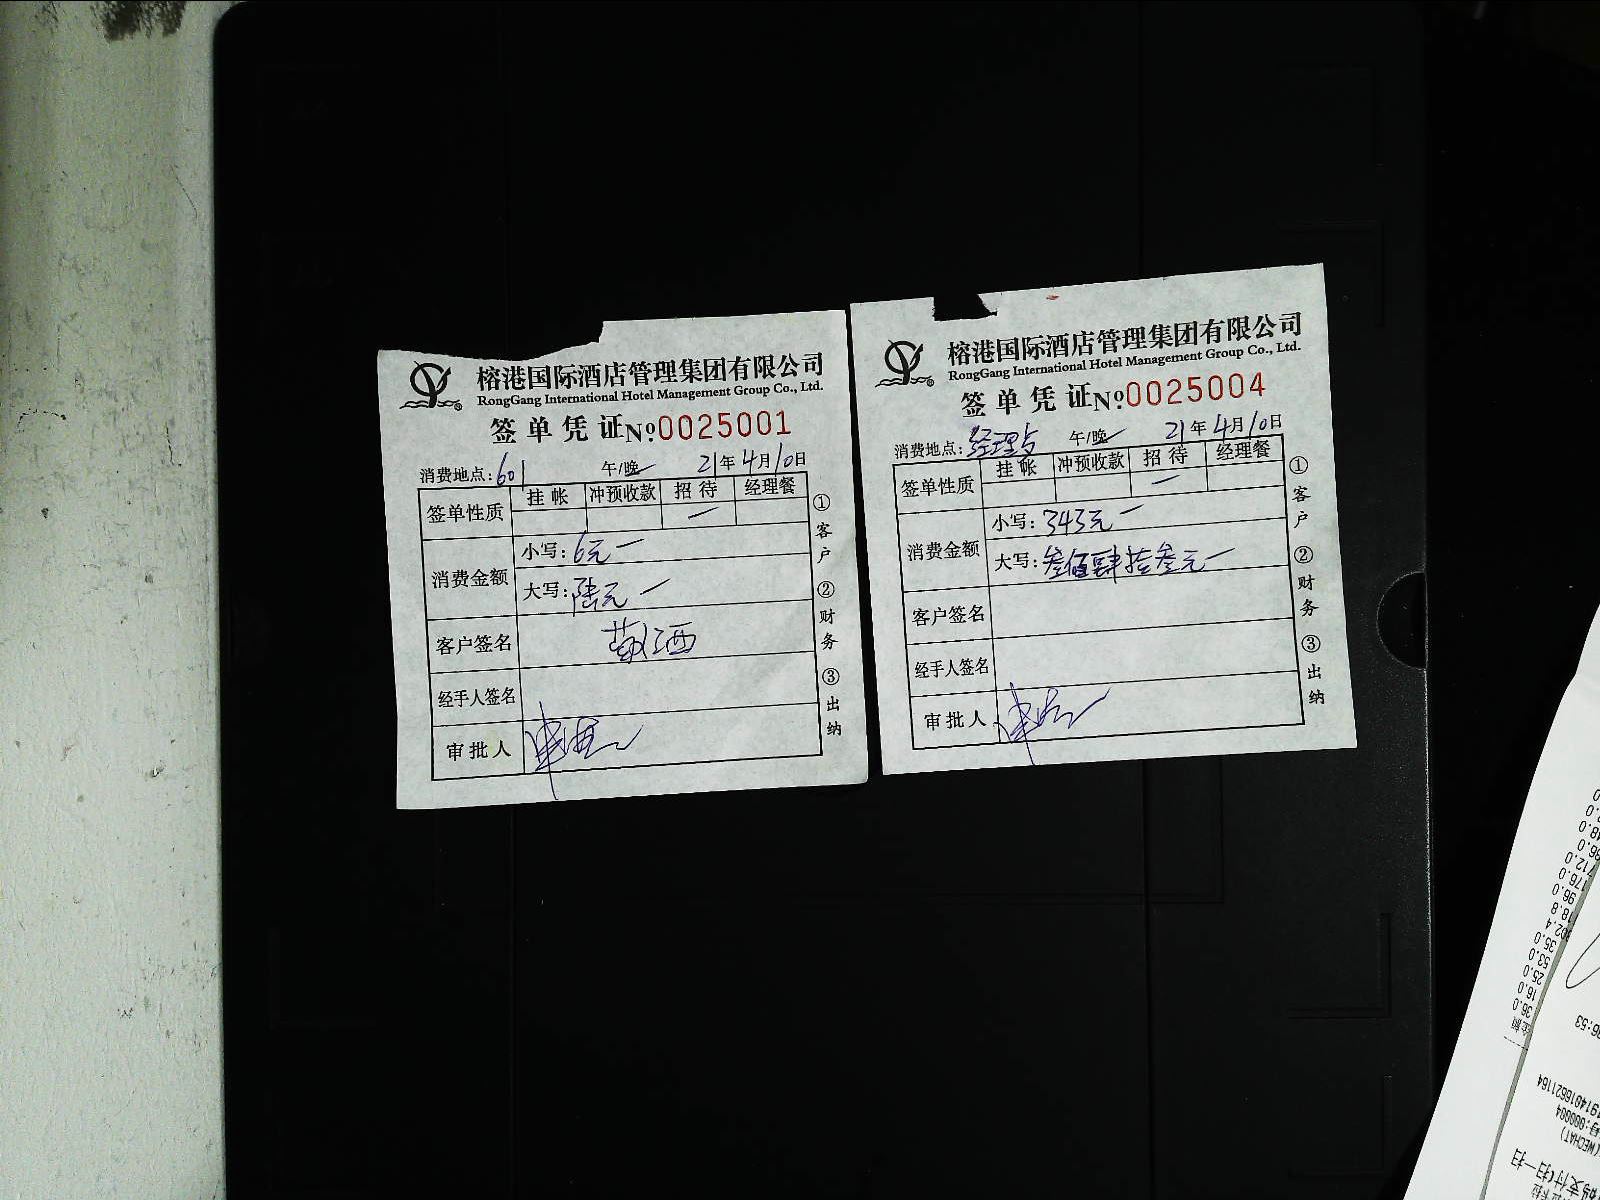 榕港国际酒店管理集团有限公司
RongGang International Hotel Management Group Co., Ltd.
签单凭证№0025001
消费地点:601 午/晚 21年4月10日
签单性质 挂帐 冲预收款 招待 经理餐
消费金额
小写:6元
大写:陆元
客户签名
经手人签名
审批人
①客户 ②财务 ③出纳
榕港国际酒店管理集团有限公司
RongGang International Hotel Management Group Co., Ltd.
签单凭证№0025004
消费地点:经理 午/晚 21年4月10日
签单性质 挂帐 冲预收款 招待 经理餐
消费金额
小写:343元
大写:叁佰肆拾叁元
客户签名
经手人签名
审批人
①客户 ②财务 ③出纳
712.0
176.0
96.0
18.8
35.0
53.0
25.0
16.0
36.0
金额
(WECHAT)